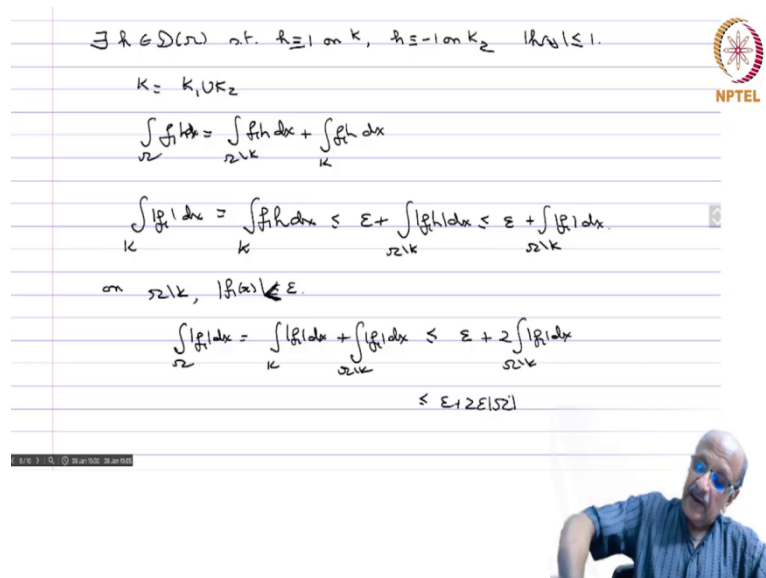 ∃ h ∈ D(Ω) s.t. h ≡ 1 on K, h ≡ -1 on K₂ |h(x)| ≤ 1.
NPTEL
K = K₁ ∪ K₂
∫_Ω f₁h dx = ∫_{Ω\K} f₁h dx + ∫_K f₁h dx
∫_K |f₁| dx = ∫_K f₁h dx ≤ ε + ∫_{Ω\K} |f₁h| dx ≤ ε + ∫_{Ω\K} |f₁| dx.
on Ω\K, |f₁(x)| < ε.
∫_Ω |f₁| dx = ∫_K |f₁| dx + ∫_{Ω\K} |f₁| dx ≤ ε + 2 ∫_{Ω\K} |f₁| dx
≤ ε + 2ε|Ω|